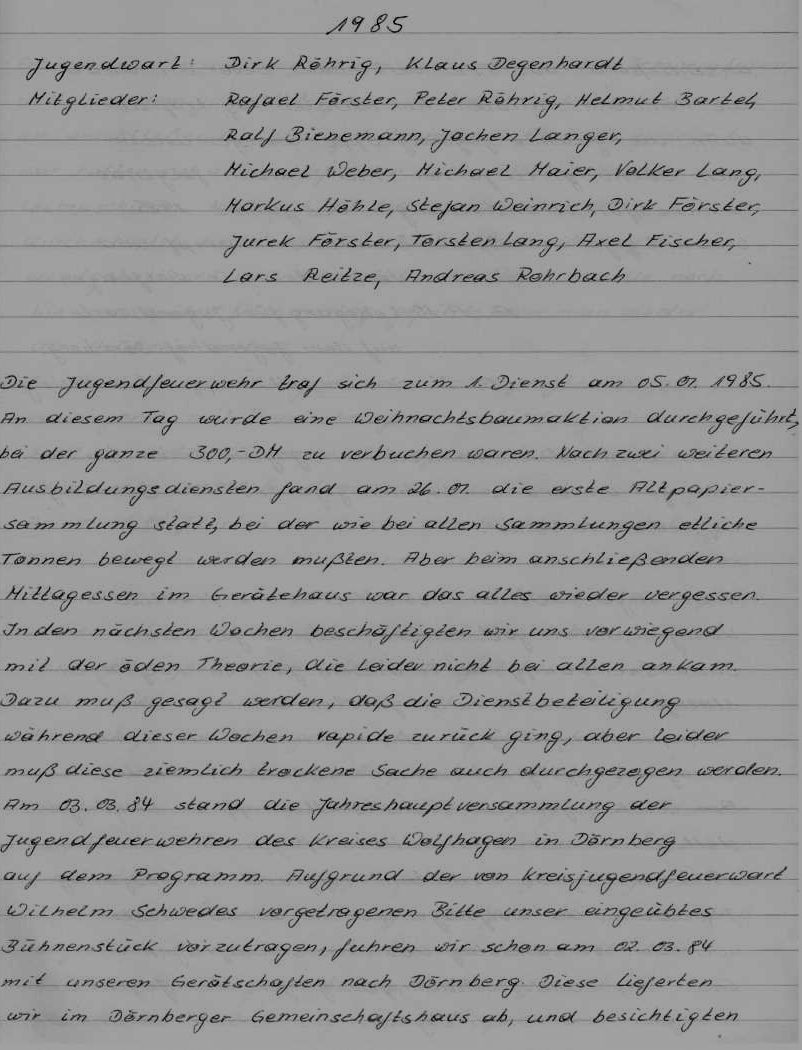 1985
Jugendwart: Dirk Röhrig, Klaus Degenhardt
Mitglieder: Rafael Förster, Peter Röhrig, Helmut Bartel,
Ralf Bienemann, Jochen Langer,
Michael Weber, Michael Maier, Volker Lang,
Markus Höhle, Stefan Weinrich, Dirk Förster,
Jurek Förster, Torsten Lang, Axel Fischer,
Lars Reitze, Andreas Rohrbach
Die Jugendfeuerwehr traf sich zum 1. Dienst am 05.01.1985.
An diesem Tag wurde eine Weihnachtsbaumaktion durchgeführt,
bei der ganze 300,-DM zu verbuchen waren. Nach zwei weiteren
Ausbildungsdiensten fand am 26.01. die erste Altpapier-
sammlung statt, bei der wie bei allen Sammlungen etliche
Tonnen bewegt werden mußten. Aber beim anschließenden
Mittagessen im Gerätehaus war das alles wieder vergessen.
In den nächsten Wochen beschäftigten wir uns vorwiegend
mit der öden Theorie, die leider nicht bei allen ankam.
Dazu muß gesagt werden, daß die Dienstbeteiligung
während dieser Wochen rapide zurück ging, aber leider
muß diese ziemlich trockene Sache auch durchgezogen werden.
Am 03.03.84 stand die Jahreshauptversammlung der
Jugendfeuerwehren des Kreises Wolfhagen in Dörnberg
auf dem Programm. Aufgrund der von Kreisjugendfeuerwart
Wilhelm Schwedes vorgetragenen Bitte unser eingeübtes
Bühnenstück vorzutragen, fuhren wir schon am 02.03.84
mit unseren Gerätschaften nach Dörnberg. Diese lieferten
wir im Dörnberger Gemeinschaftshaus ab, und besichtigten